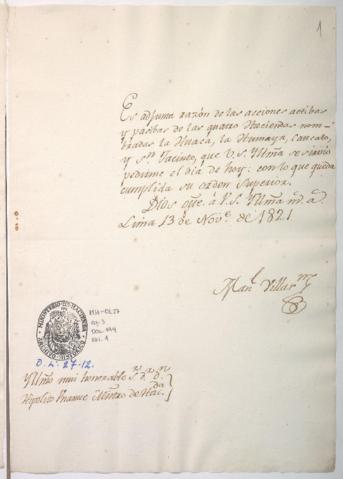 1
Es adjunta razón de las acciones actibas
y pasibas de las quatro Haciendas nom-
bradas la Huaca, la Humaya, Caucato,
y Sn. Jacinto, que V.S. Yltma. se sirvió
pedirme el dia de hoy: con lo que queda
cumplida su orden Superior.
Dios gue. á V.S. Yltma. m. a.
Lima 13 de Nove. de 1821
Manl. Villar
MINISTERIO DE HACIENDA
O.L. 27-12.
Yltmo. mui honorable Sr. D. D.
Hipolito Unanue Mintro de Hacda.